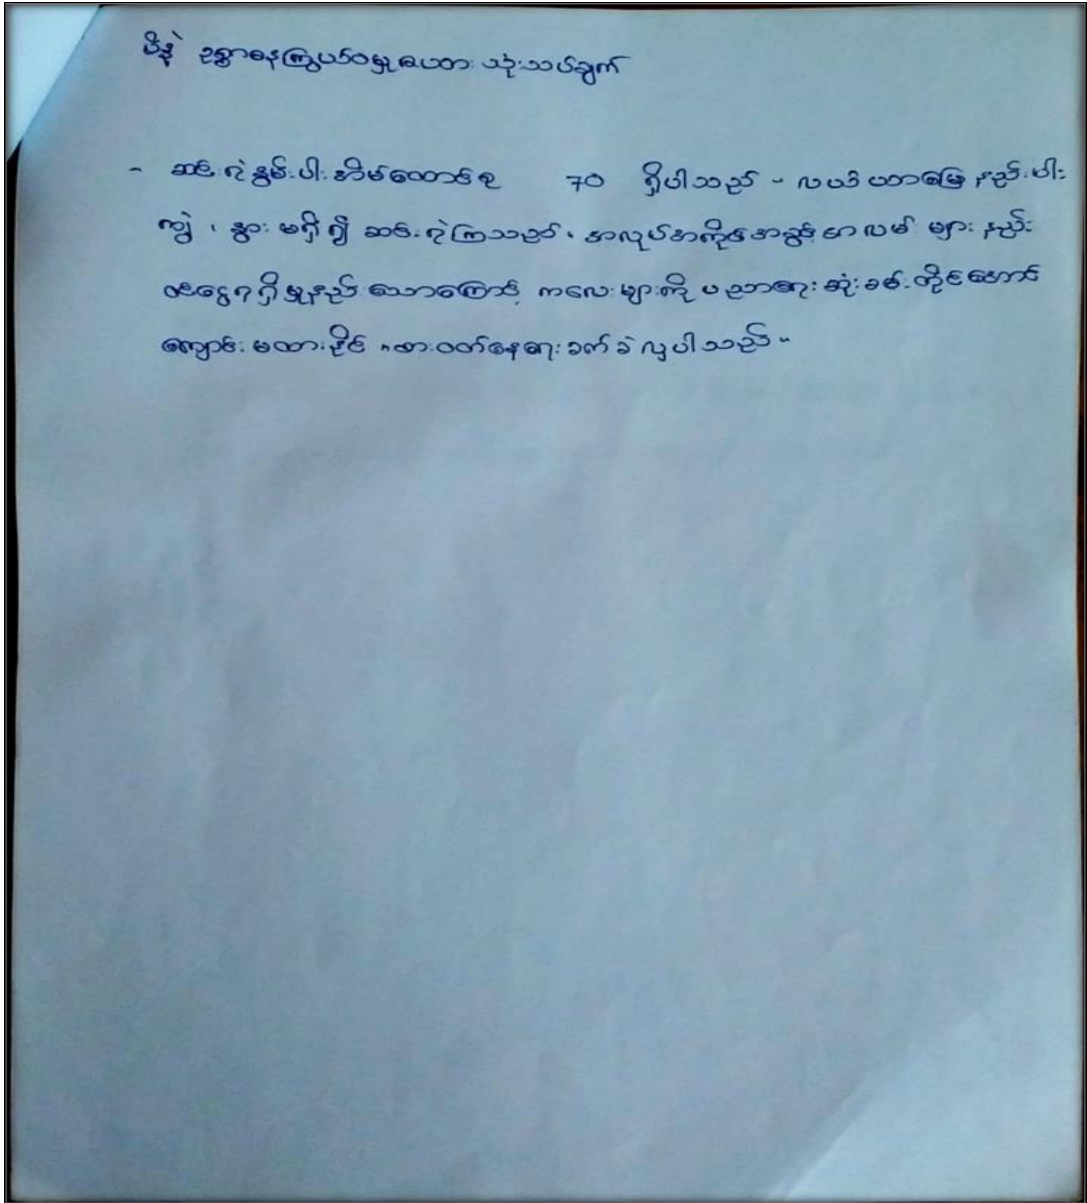 ပိန္နဲ ဥစ္စာဓနကြွယ်ဝမှုဇယား သုံးသပ်ချက်
- ဆင်းရဲနွမ်းပါးအိမ်ထောင်စု 70 ရှိပါသည် - လယ်ယာမြေနည်းပါး
ကျွဲ ၊ နွား မရှိ၍ ဆင်းရဲကြသည်၊ အလုပ်အကိုင်အခွင့်အလမ် များ နည်း
ငွေရရှိမှုနည်းသောကြောင့် ကလေးများကို ပညာရေးဆုံးခမ်းတိုင်အောင်
ကျောင်းမထားနိုင် "စားဝတ်နေရေးခက်ခဲလှပါသည်"